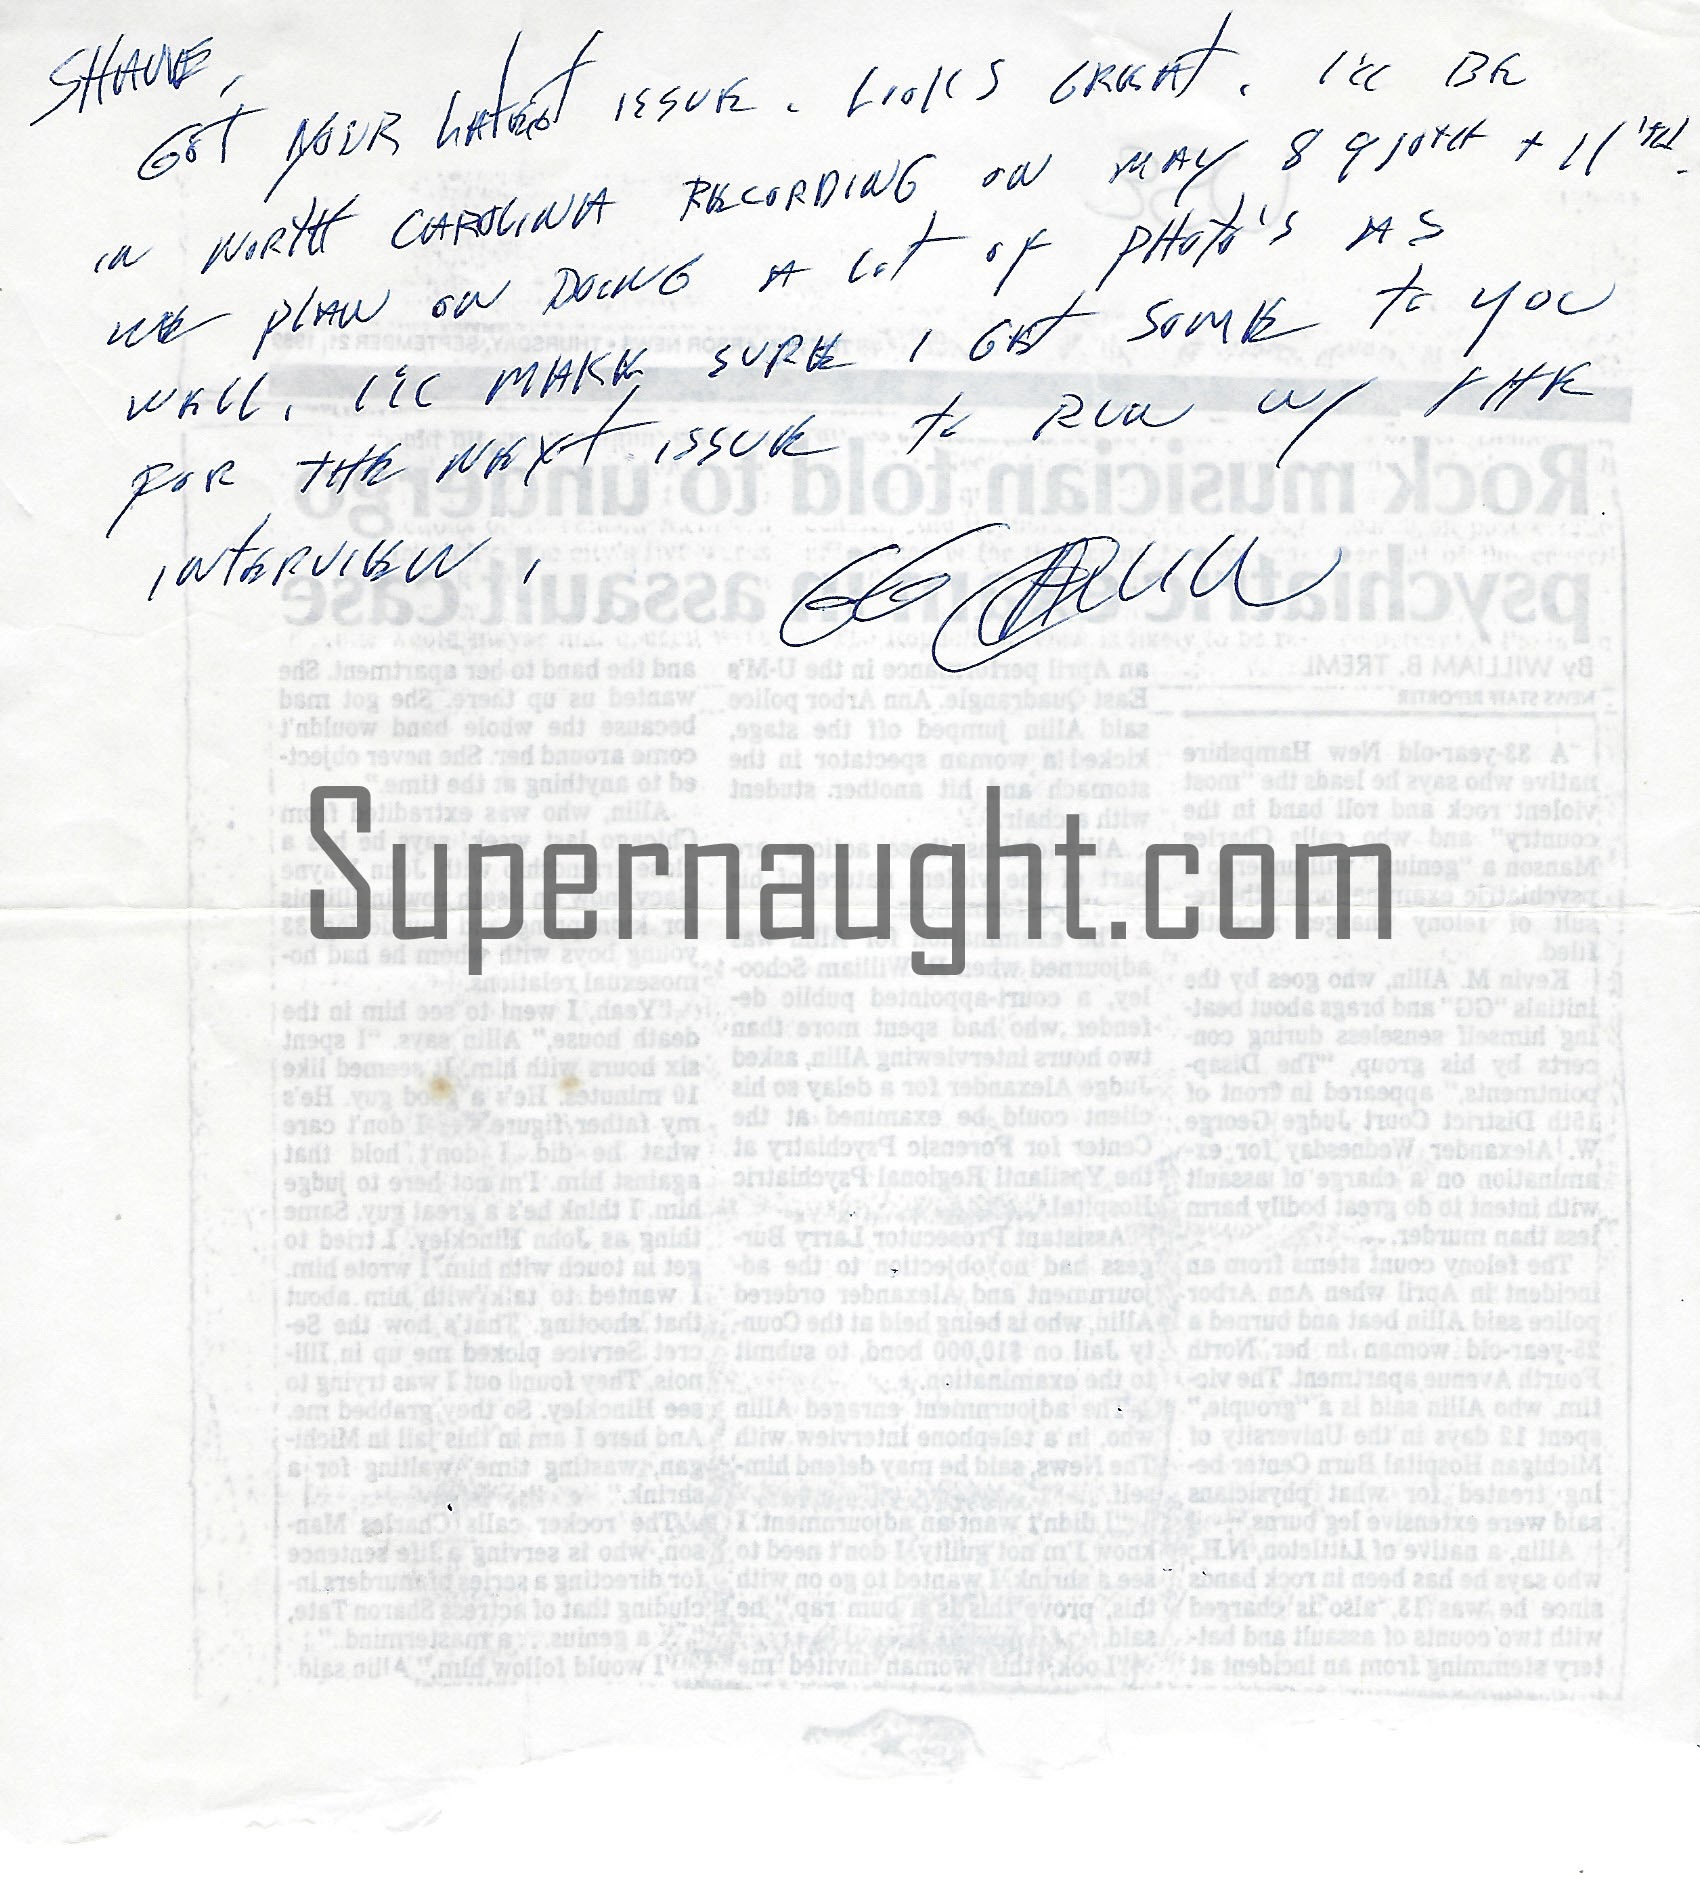 SHANE,
GOT YOUR LATEST ISSUE. LOOKS GREAT. I'LL BE
IN NORTH CAROLINA RECORDING ON MAY 8 9 10TH + 11'TH.
WE PLAN ON DOING A LOT OF PHOTO'S AS
WELL. I'LL MAKE SURE I GET SOME TO YOU
FOR THE NEXT ISSUE TO RUN W/ THE
INTERVIEW.
GG Allin
NEWS • THURSDAY, SEPTEMBER 21, 1989
Rock musician told to undergo
psychiatric exam in assault case
By WILLIAM B. TREML
NEWS STAFF REPORTER
A 33-year-old New Hampshire
native who says he leads the "most
violent rock and roll band in the
country" and who calls Charles
Manson a "genius" will undergo
psychiatric examination as the re-
sult of felony charges recently
filed.
Kevin M. Allin, who goes by the
initials "GG" and brags about beat-
ing himself senseless during con-
certs by his group, "The Disap-
pointments," appeared in front of
15th District Court Judge George
W. Alexander Wednesday for ex-
amination on a charge of assault
with intent to do great bodily harm
less than murder.
The felony count stems from an
incident in April when Ann Arbor
police said Allin beat and burned a
25-year-old woman in her North
Fourth Avenue apartment. The vic-
tim, who Allin said is a "groupie,"
spent 12 days in the University of
Michigan Hospital Burn Center be-
ing treated for what physicians
said were extensive leg burns.
Allin, a native of Littleton, N.H.,
who says he has been in rock bands
since he was 13, also is charged
with two counts of assault and bat-
tery stemming from an incident at
an April performance in the U-M's
East Quadrangle. Ann Arbor police
said Allin jumped off the stage,
kicked a woman spectator in the
stomach and hit another student
with a chair.
part of the violent nature of his
The examination for Allin was
adjourned when William Schoo-
ley, a court-appointed public de-
fender who had spent more than
two hours interviewing Allin, asked
Judge Alexander for a delay so his
client could be examined at the
Center for Forensic Psychiatry at
the Ypsilanti Regional Psychiatric
Hospital.
Assistant Prosecutor Larry Bur-
gess had no objection to the ad-
journment and Alexander ordered
Allin, who is being held at the Coun-
ty Jail on $10,000 bond, to submit
to the examination.
The adjournment enraged Allin
who, in a telephone interview with
The News, said he may defend him-
self.
"I didn't want an adjournment. I
know I'm not guilty. I don't need to
see a shrink. I wanted to go on with
this, prove this is a bum rap," he
said.
"Look, this woman invited me
and the band to her apartment. She
wanted us up there. She got mad
because the whole band wouldn't
come around her. She never object-
ed to anything at the time."
Allin, who was extradited from
Chicago last week, says he has a
close friendship with John Wayne
young boys with whom he had ho-
mosexual relations.
"Yeah, I went to see him in the
death house," Allin says. "I spent
six hours with him. It seemed like
10 minutes. He's a good guy. He's
my father figure. I don't care
what he did. I don't hold that
against him. I'm not here to judge
him. I think he's a great guy. Same
thing as John Hinckley. I tried to
get in touch with him. I wrote him.
I wanted to talk with him about
that shooting. That's how the Se-
cret Service picked me up in Illi-
nois. They found out I was trying to
see Hinckley. So they grabbed me.
And here I am in this jail in Michi-
gan, wasting time waiting for a
shrink."
The rocker calls Charles Man-
son, who is serving a life sentence
for directing a series of murders in-
cluding that of actress Sharon Tate,
a genius... a mastermind."
"I would follow him," Allin said.
Supernaught.com